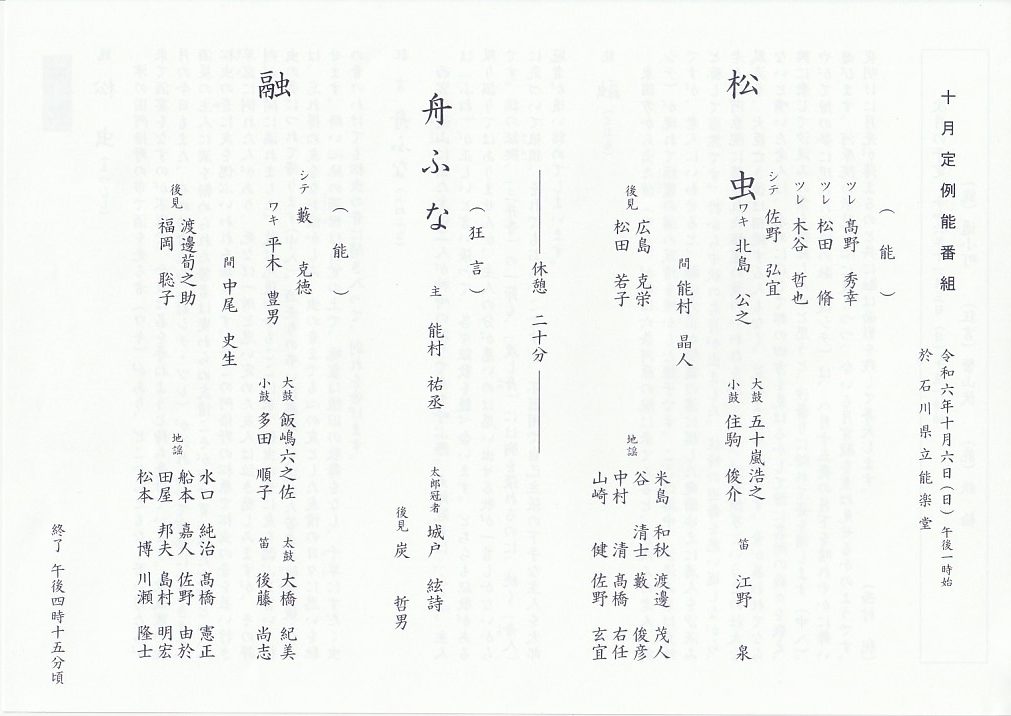 十月定例能番組
令和六年十月六日(日)午後一時始
於 石川県立能楽堂
(能)
ツレ 髙野 秀幸
ツレ 松田 脩
ツレ 木谷 哲也
シテ 佐野 弘宜
松虫
ワキ 北島 公之
大鼓 五十嵐浩之
小鼓 住駒 俊介
笛 江野 泉
間 能村 晶人
後見
広島 克栄
松田 若子
地謡
米島 和秋 渡邊 茂人
谷 清士 藪 俊彦
中村 清 髙橋 右任
山崎 健 佐野 玄宜
休憩 二十分
(狂言)
舟ふな
主 能村 祐丞
太郎冠者 城戸 絃詩
後見 炭 哲男
(能)
シテ 藪 克徳
融
ワキ 平木 豊男
大鼓 飯嶋六之佐
小鼓 多田 順子
太鼓 大橋 紀美
笛 後藤 尚志
間 中尾 史生
後見
渡邊荀之助
福岡 聡子
地謡
水口 純治 髙橋 憲正
船本 嘉人 佐野 由於
田屋 邦夫 島村 明宏
松本 博 川瀬 隆士
終了 午後四時十五分頃